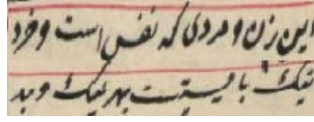 این زن و مردی که نفس است و خرد
نیک بایستست بهر نیک و بد